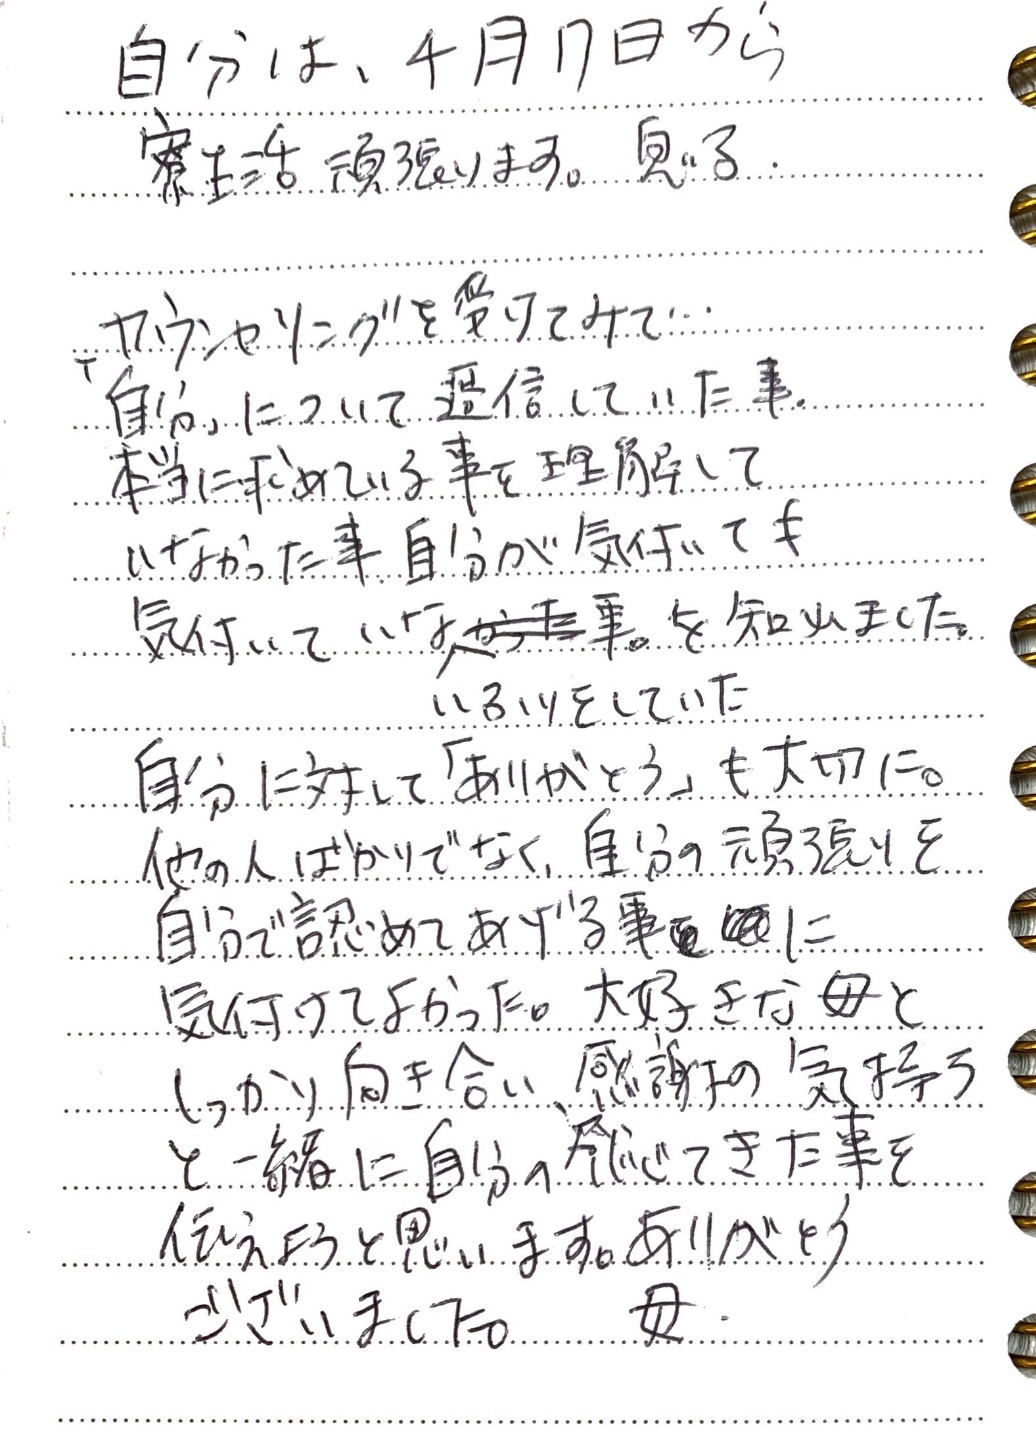 自分は、4月17日から
寮生活頑張ります。 息子.
カウンセリングを受けてみて…
「自分」について過信していた事。
本当に求めている事を理解して
いなかった事、自分が気付いても
気付いていな事。を知れました。
いふりをしていた
自分に対して「ありがとう」も大切に。
他の人ばかりでなく、自分の頑張りを
自分で認めてあげる事に
気付けてよかった。大好きな母と
しっかり向き合い、感謝の気持ち
と一緒に自分の感じてきた事を
伝えようと思います。ありがとう
ございました。 母.